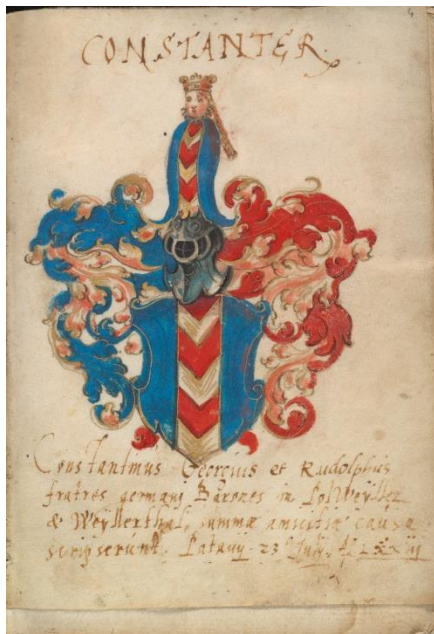 CONSTANTER.
Constantinus Georgius et Rudolphus
fratres germany Barones in PolWeyller
& Weyllerthal, summæ amicitiæ causa
scripserunt. Patavij 23 July,